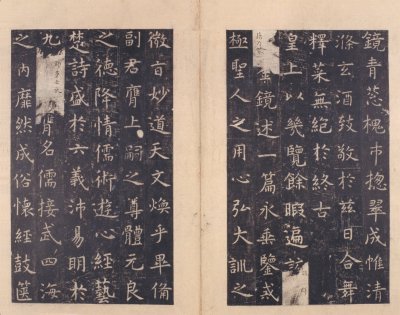 鏡青葱槐市揔翠成帷清
滌玄酒致敬於茲日合舞
釋菜無絕於終古
皇上以幾覽餘暇遍該
金鏡述一篇永垂鑒戒
極聖人之用心弘大訓之
微旨妙道天文煥乎畢備
副君膺上嗣之尊體元良
之德降情儒術遊心經藝
楚詩盛於六義沛易明於
九膺名儒接武四海
之內靡然成俗懷經鼓篋